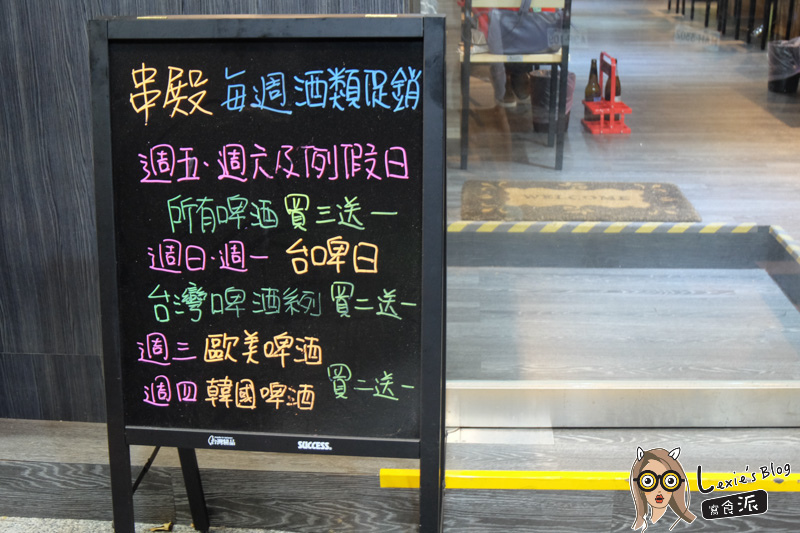 串殿 每週酒類促銷
週五.週六及例假日
所有啤酒買三送一
週日.週一 台啤日
台灣啤酒系列 買二送一
週三 歐美啤酒
週四 韓國啤酒 買二送一
success.
WELCOME
Lexie's Blog
寫食派